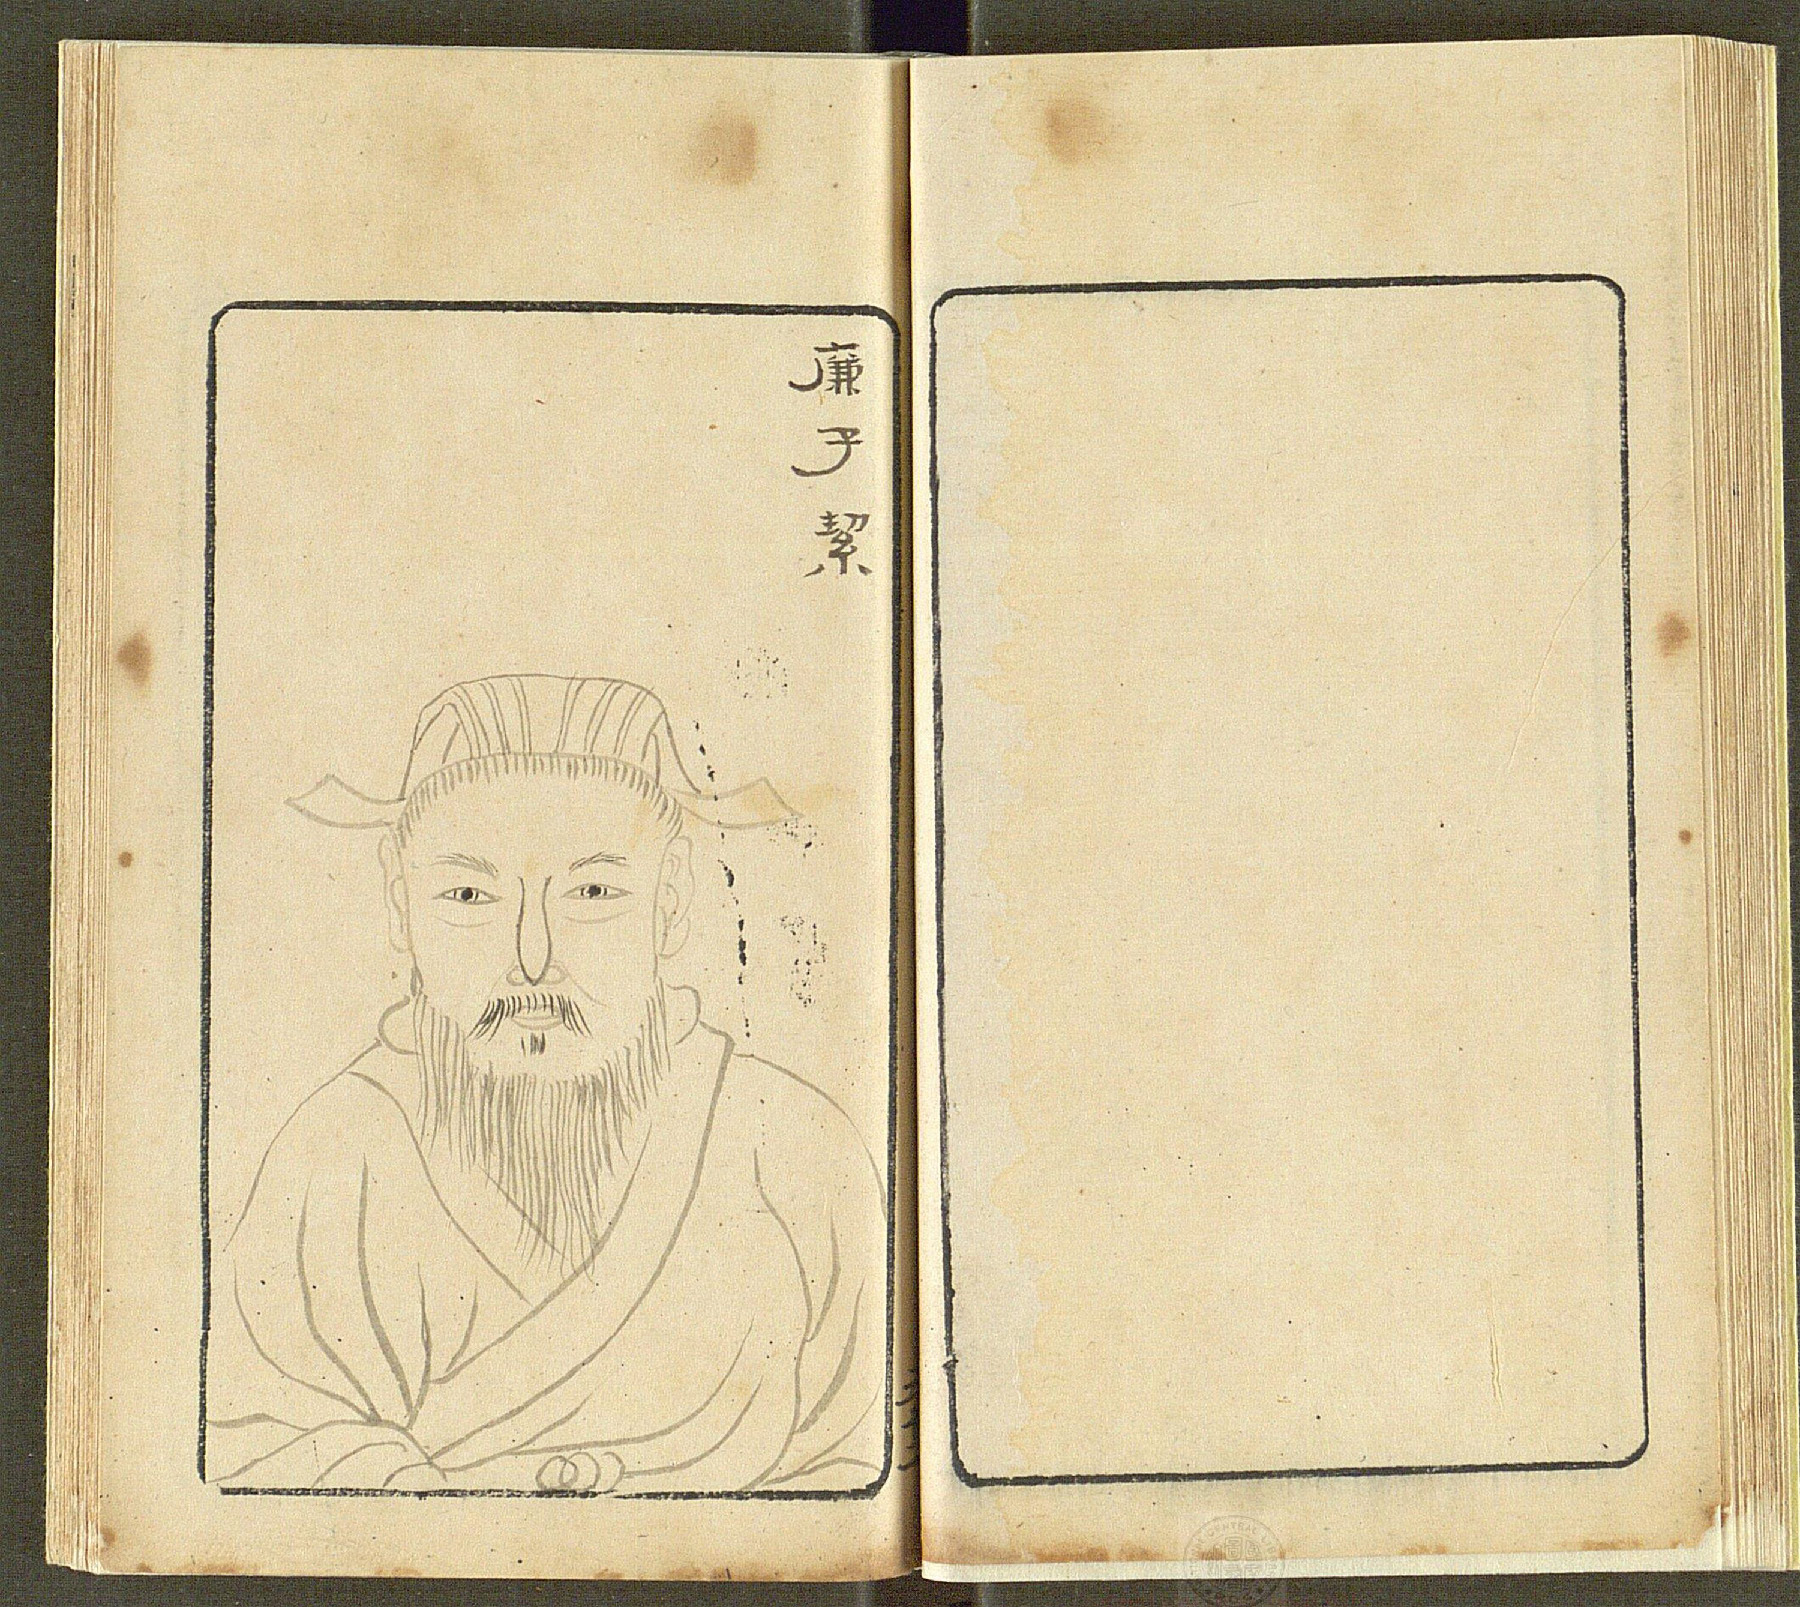 廉子絜